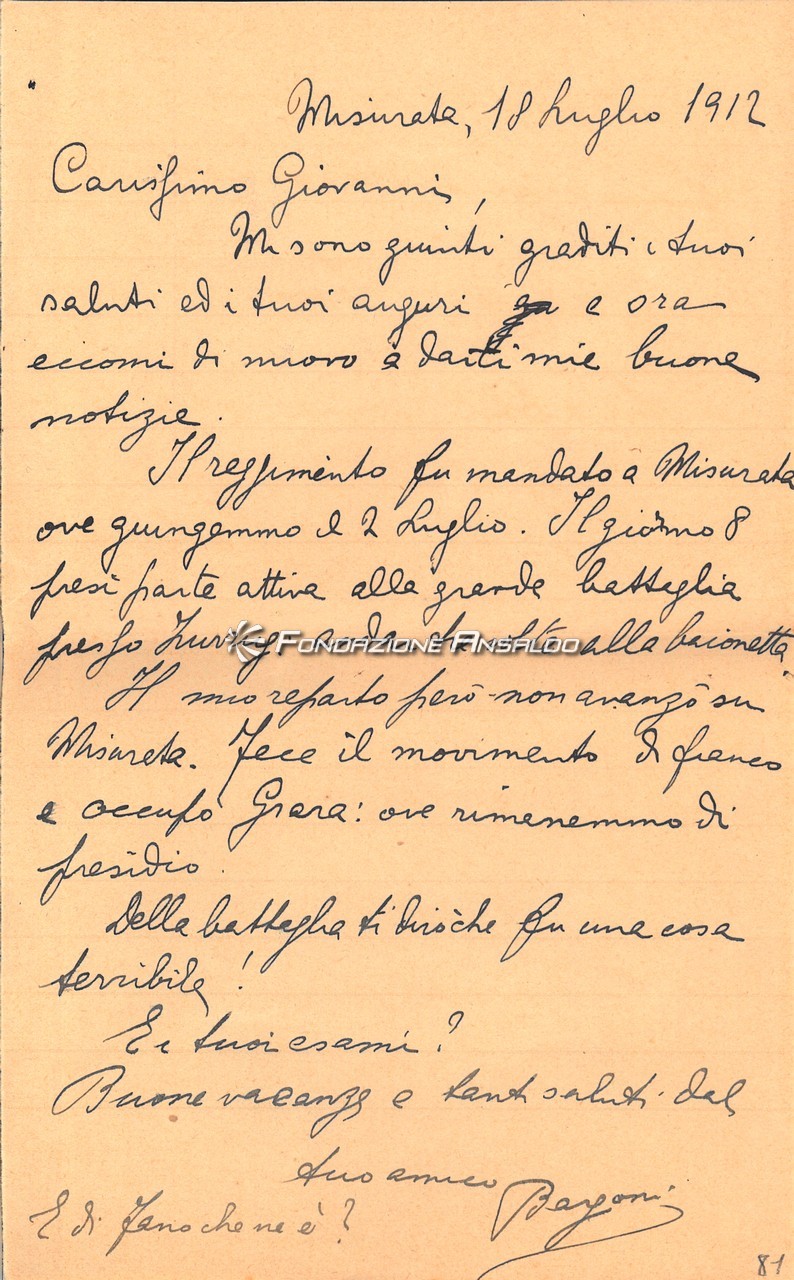 Misurata, 18 Luglio 1912
Carissimo Giovanni,
Mi sono giunti graditi i tuoi
saluti ed i tuoi auguri e ora
eccomi di nuovo a darti mie buone
notizie.
Il reggimento fu mandato a Misurata
ove giungemmo il 2 Luglio. Il giorno 8
presi parte attiva alla grande battaglia
presso alla baionetta.
FONDAZIONE ANSALDO
Il mio reparto però non avanzò su
Misurata. Fece il movimento di fianco
e occupò Grara: ove rimanemmo di
presidio.
Della battaglia ti dirò che fu una cosa
terribile!
E i tuoi esami?
Buone vacanze e tanti saluti dal
tuo amico
Bargoni
E di Fano che ne è?
81